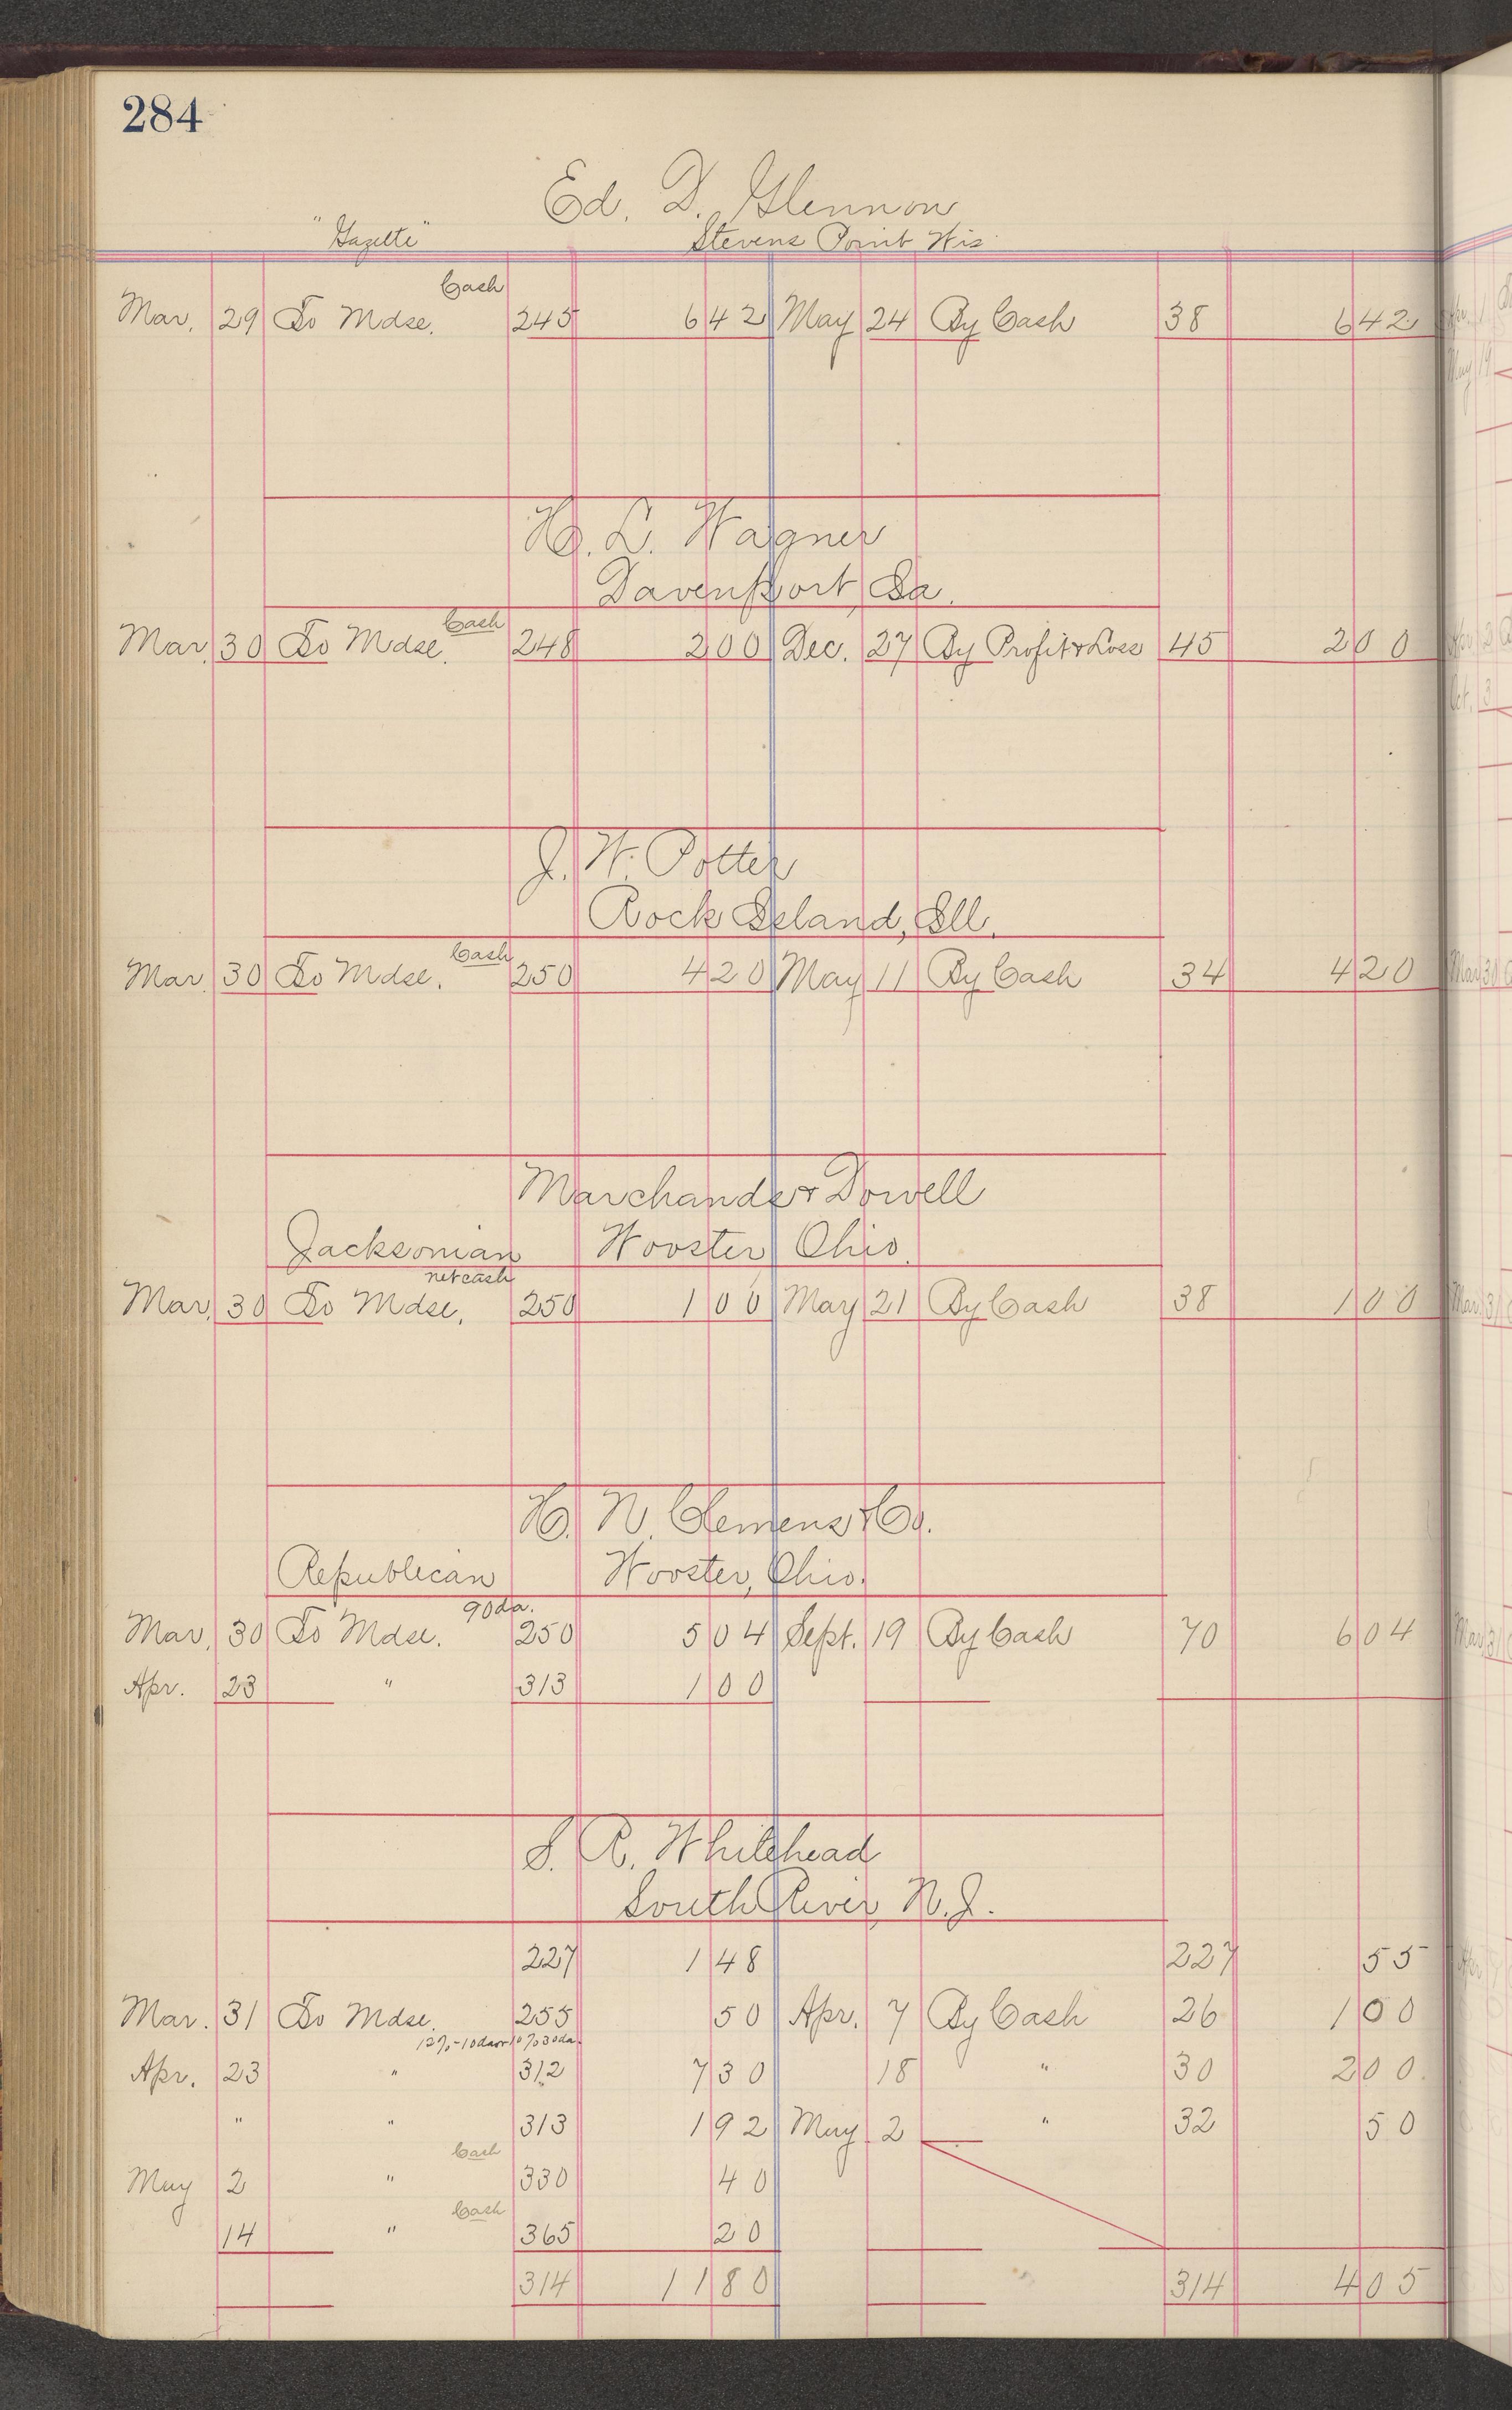 284
Ed. D. Glennon
"Gazette" Stevens Point Wis
Cash
Mar. 29 To Mdse. 245 6 42 May 24 By Cash 38 6 42
H. L. Wagner
Davenport, Ia.
Cash
Mar. 30 To Mdse. 248 2 00 Dec. 27 By Profit & Loss 45 2 00
J. W. Potter
Rock Island, Ill.
Cash
Mar. 30 To Mdse. 250 4 20 May 11 By Cash 34 4 20
Marchand & Dowell
Jacksonian Wooster Ohio.
net cash
Mar. 30 To Mdse. 250 1 00 May 21 By Cash 38 1 00
H. N. Clemens & Co.
Republican Wooster, Ohio.
90 da.
Mar. 30 To Mdse. 250 5 04 Sept. 19 By Cash 70 6 04
Apr. 23 " 313 1 00
S. R. Whitehead
South River, N. J.
227 1 48 227 55
Mar. 31 To Mdse. 255 50 Apr. 7 By Cash 26 1 00
12%-10da or 10%30da.
Apr. 23 " 312 7 30 18 " 30 2 00
" " 313 1 92 May 2 " 32 50
Cash
May 2 " 330 40
Cash
14 " 365 20
314 11 80 314 4 05